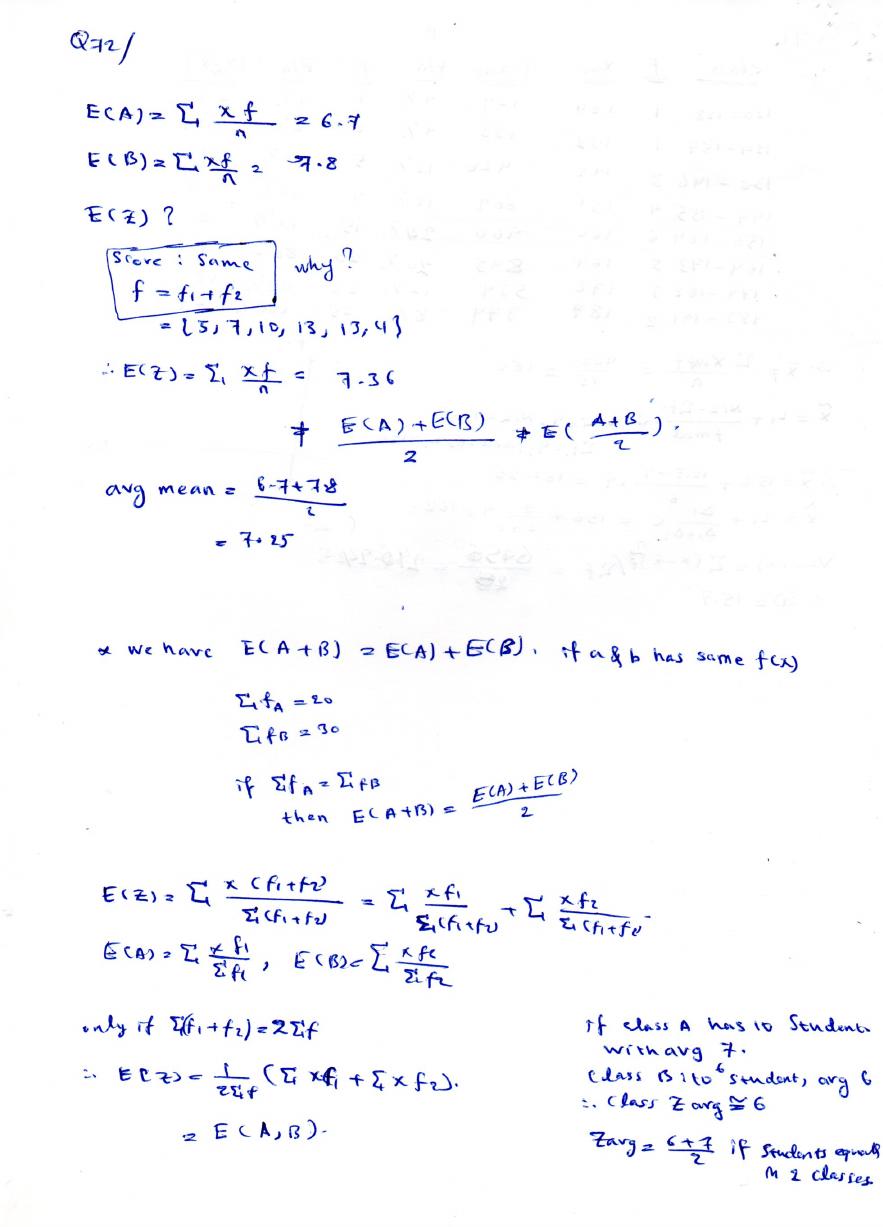 Q72/
E(A) = Σ xf/n = 6.7
E(B) = Σ xf/n = 7.8
E(Z) ?
Score : Same why?
f = f1 + f2
= {5, 7, 10, 13, 13, 4}
∴ E(Z) = Σ xf/n = 7.36
≠ (E(A) + E(B))/2 ≠ E((A+B)/2).
avg mean = (6.7+7.8)/2
= 7.25
* we have E(A+B) = E(A) + E(B), if a & b has same f(x)
Σ fA = 20
Σ fB = 30
if Σ fA = Σ fB
then E(A+B) = (E(A) + E(B))/2
E(Z) = Σ x(f1+f2)/Σ(f1+f2) = Σ xf1/Σ(f1+f2) + Σ xf2/Σ(f1+f2)
E(A) = Σ xf1/Σf1, E(B) = Σ xf2/Σf2
only if Σ(f1+f2) = 2Σf
∴ E(Z) = 1/2Σf (Σ xf1 + Σ xf2).
= E(A,B).
If class A has 10 Students
with avg 7.
Class B : 10^6 student, avg 6
∴ Class Z avg ≅ 6
Zavg = (6+7)/2 if Students equals
in 2 classes.